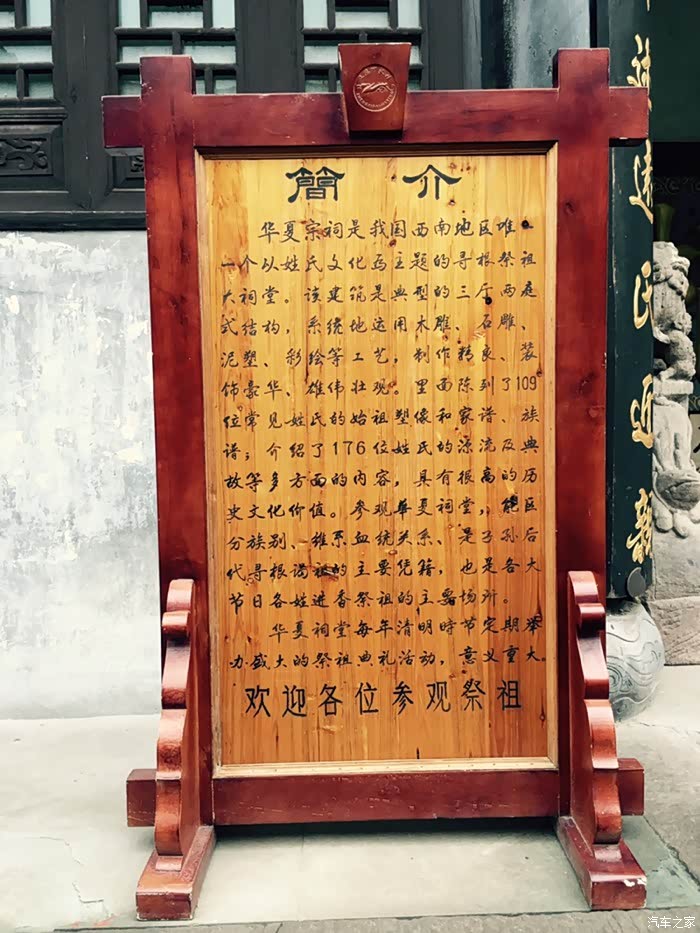 簡介
华夏宗祠是我国西南地区唯
一个以姓氏文化为主题的寻根祭祖
大祠堂。该建筑是典型的三厅两庭
式结构，系统地运用木雕、石雕、
泥塑、彩绘等工艺，制作精良、装
饰豪华、雄伟壮观。里面陈列了109
位常见姓氏的始祖塑像和家谱、族
谱；介绍了176位姓氏的源流及典
故等多方面的内容，具有很高的历
史文化价值。参观华夏祠堂，能区
分族别、维系血统关系、是子孙后
代寻根谒祖的主要凭籍，也是各大
节日各姓进香祭祖的主要场所。
华夏祠堂每年清明时节定期举
办盛大的祭祖典礼活动，意义重大。
欢迎各位参观祭祖
遠氏近
汽车之家